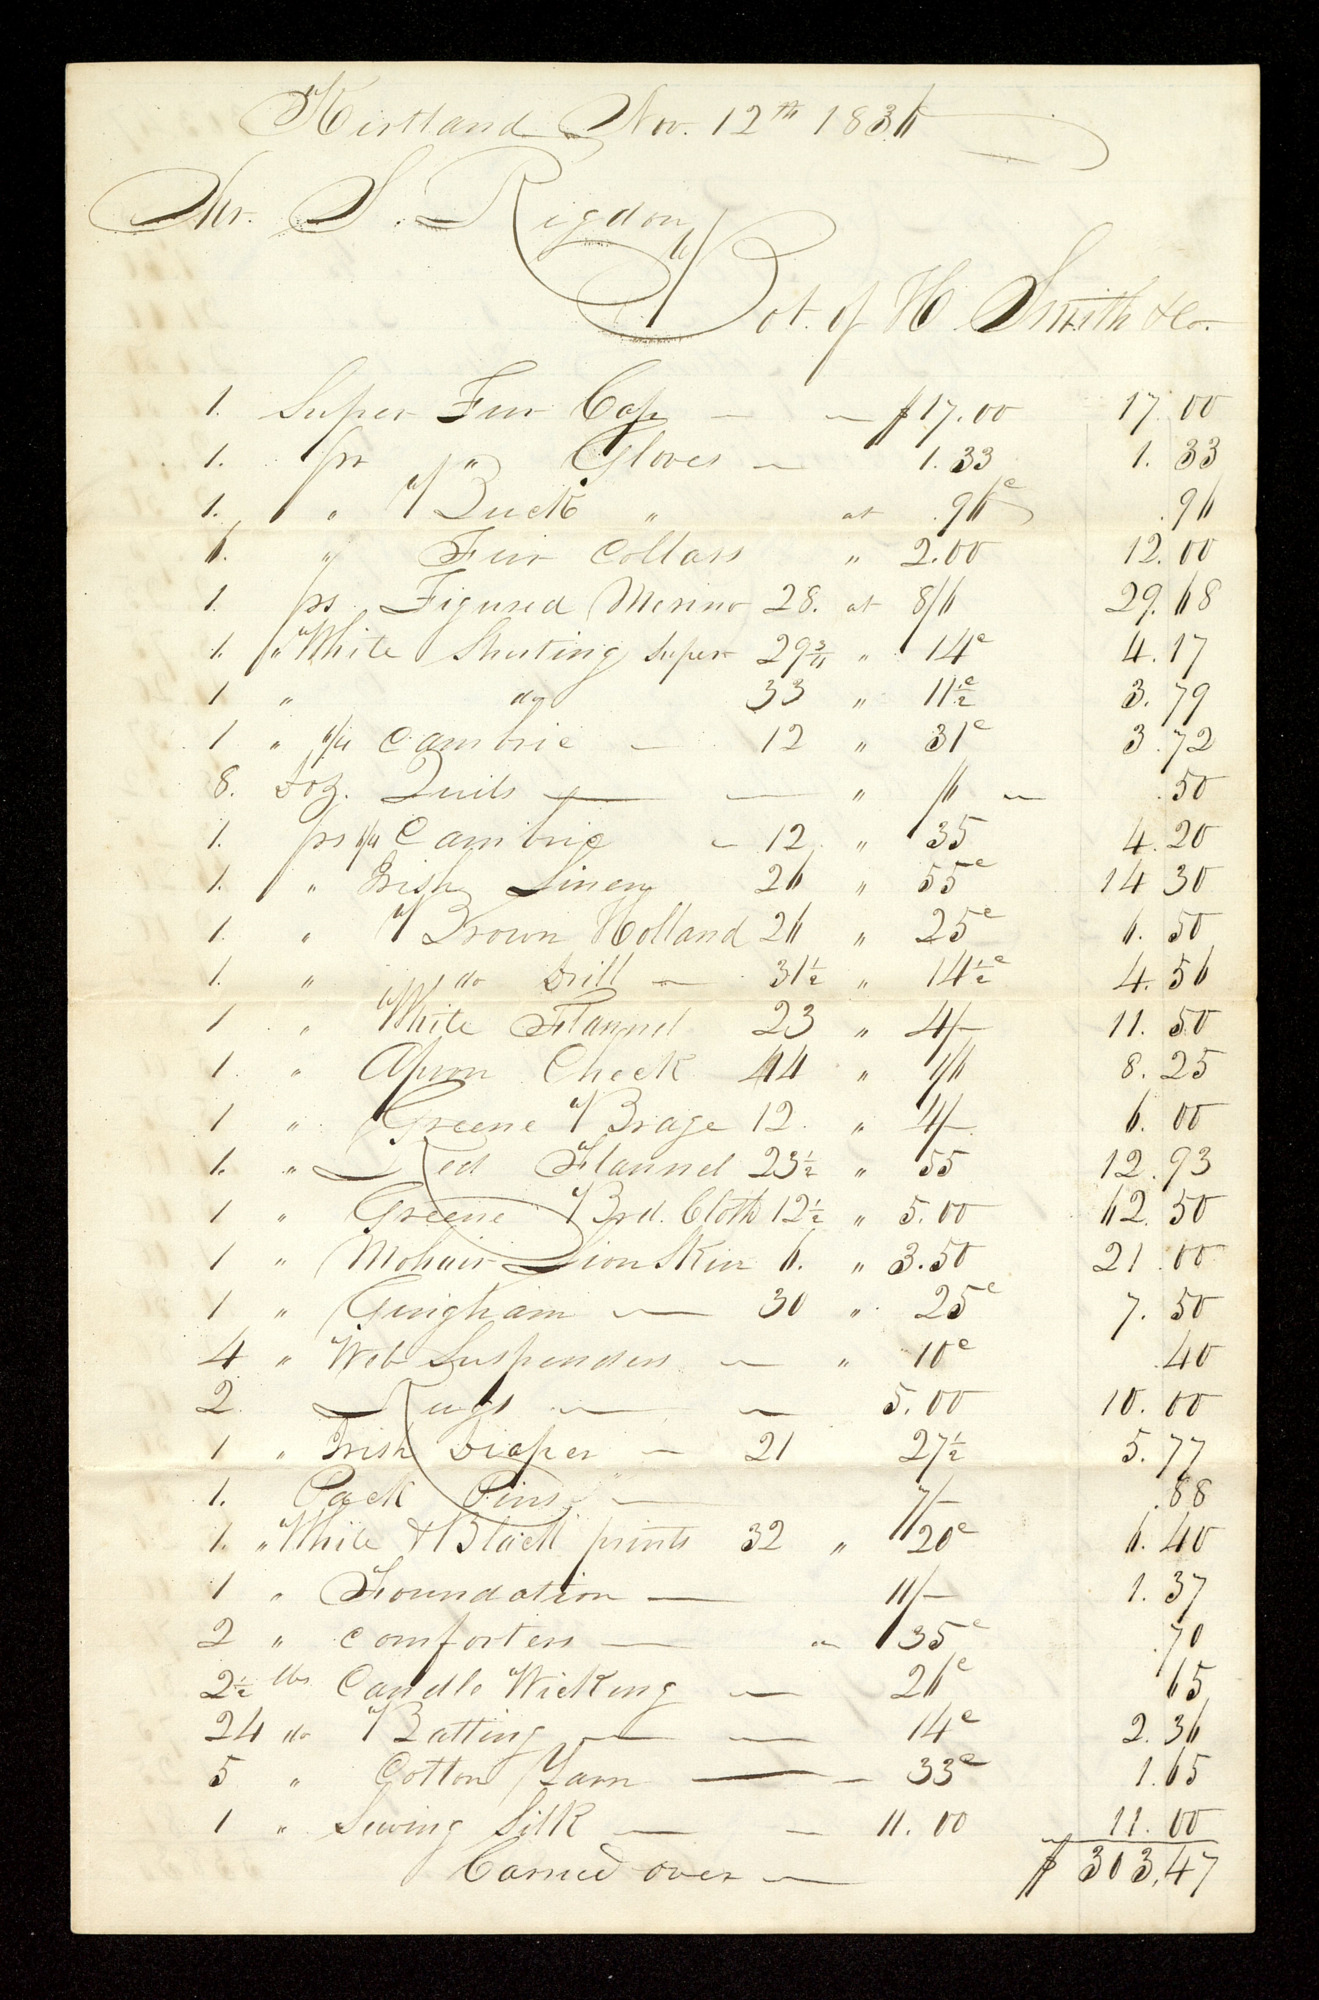 Kirtland Nov. 12th 1836
Mr. S. Rigdon
Bot. of H. Smith & Co.
1. Super Fur Cap — — $17.00 17.00
1. pr " Gloves — 1.33 1.33
1. " Buck " at .96c .96
6. " Fur Collars " 2.00 12.00
1. ps. Figured Merino 28. at 8/6 29.68
1. " White Shirting Super 29 3/4 " 14c 4.17
1 " do 33 " 11½c 3.79
1 " 6/4 Cambric — 12 " 31c 3.72
8. Doz. Quils — — " /6 — .50
1. ps 6/4 Cambric — 12 " 35 4.20
1. " Irish Linen 26 " 55c 14 30
1. " Brown Holland 26 " 25c 6.50
1. " do Drill — 31½ " 14½c 4.56
1 " White Flannel 23 " 4/- 11.50
1 " Apron Check 44 " 1/6 8.25
1 " Greene Braze 12. " 4/- 6.00
1. " Red Flannel 23½ " 55 12.93
1 " Greene Brd. Cloth 12½ " 5.00 62.50
1 " Mohair Lion Skin 6. " 3.50 21.00
1 " Gingham — 30 " 25c 7.50
4 " Web Suspenders — " 10c .40
2. Rugs — — 5.00 10.00
1 " Irish Diaper — 21 27½ 5.77
1. Pack Pins — 7/- .88
1. " White & Black prints 32 " 20c 6.40
1 " Foundation — 11/- 1.37
2 " Comforters — " 35c .70
2½ lbs Candle Wicking — 26c 65
24 do Batting — — 14c 2.36
5 " Cotton Yarn — — 33c 1.65
1 " Sewing Silk — — 11.00 11.00
Carried over — $303.47